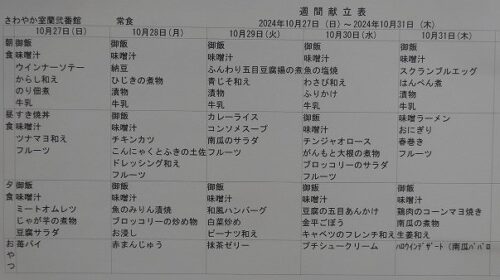 さわやか室蘭弐番館 常食 週間献立表
2024年10月27日(日)～2024年10月31日(木)
10月27日(日) 10月28日(月) 10月29日(火) 10月30日(水) 10月31日(木)
朝食
御飯 御飯 御飯 御飯 御飯
味噌汁 味噌汁 味噌汁 味噌汁 味噌汁
ウインナーソテー 納豆 ふんわり五目豆腐揚の煮 魚の塩焼 スクランブルエッグ
からし和え ひじきの煮物 青じそ和え わさび和え はんぺん煮
のり佃煮 漬物 漬物 ふりかけ 漬物
牛乳 牛乳 牛乳 牛乳 牛乳
昼食
すき焼丼 御飯 カレーライス 御飯 味噌ラーメン
味噌汁 味噌汁 コンソメスープ 味噌汁 おにぎり
ツナマヨ和え チキンカツ 南瓜のサラダ チンジャオロース 春巻き
フルーツ こんにゃくとふきの土佐 フルーツ がんもと大根の煮物 フルーツ
ドレッシング和え ブロッコリーのサラダ
フルーツ フルーツ
夕食
御飯 御飯 御飯 御飯 御飯
味噌汁 味噌汁 味噌汁 味噌汁 味噌汁
ミートオムレツ 魚のみりん漬焼 和風ハンバーグ 豆腐の五目あんかけ 鶏肉のコーンマヨ焼き
じゃが芋の煮物 ブロッコリーの炒め物 白菜炒め 金平ごぼう 南瓜の煮物
豆腐サラダ お浸し ピーナツ和え キャベツのフレンチ和え 生姜和え
おやつ
苺パイ 赤まんじゅう 抹茶ゼリー プチシュークリーム ハロウィンデザート(南瓜ババロ